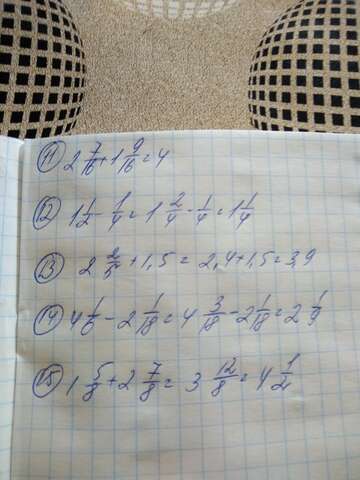 11 2 7/16 + 1 9/16 = 4
12 1 1/2 - 1/4 = 1 2/4 - 1/4 = 1 1/4
13 2 2/5 + 1,5 = 2,4 + 1,5 = 3,9
14 4 1/6 - 2 1/18 = 4 3/18 - 2 1/18 = 2 1/9
15 1 5/8 + 2 7/8 = 3 12/8 = 4 1/2